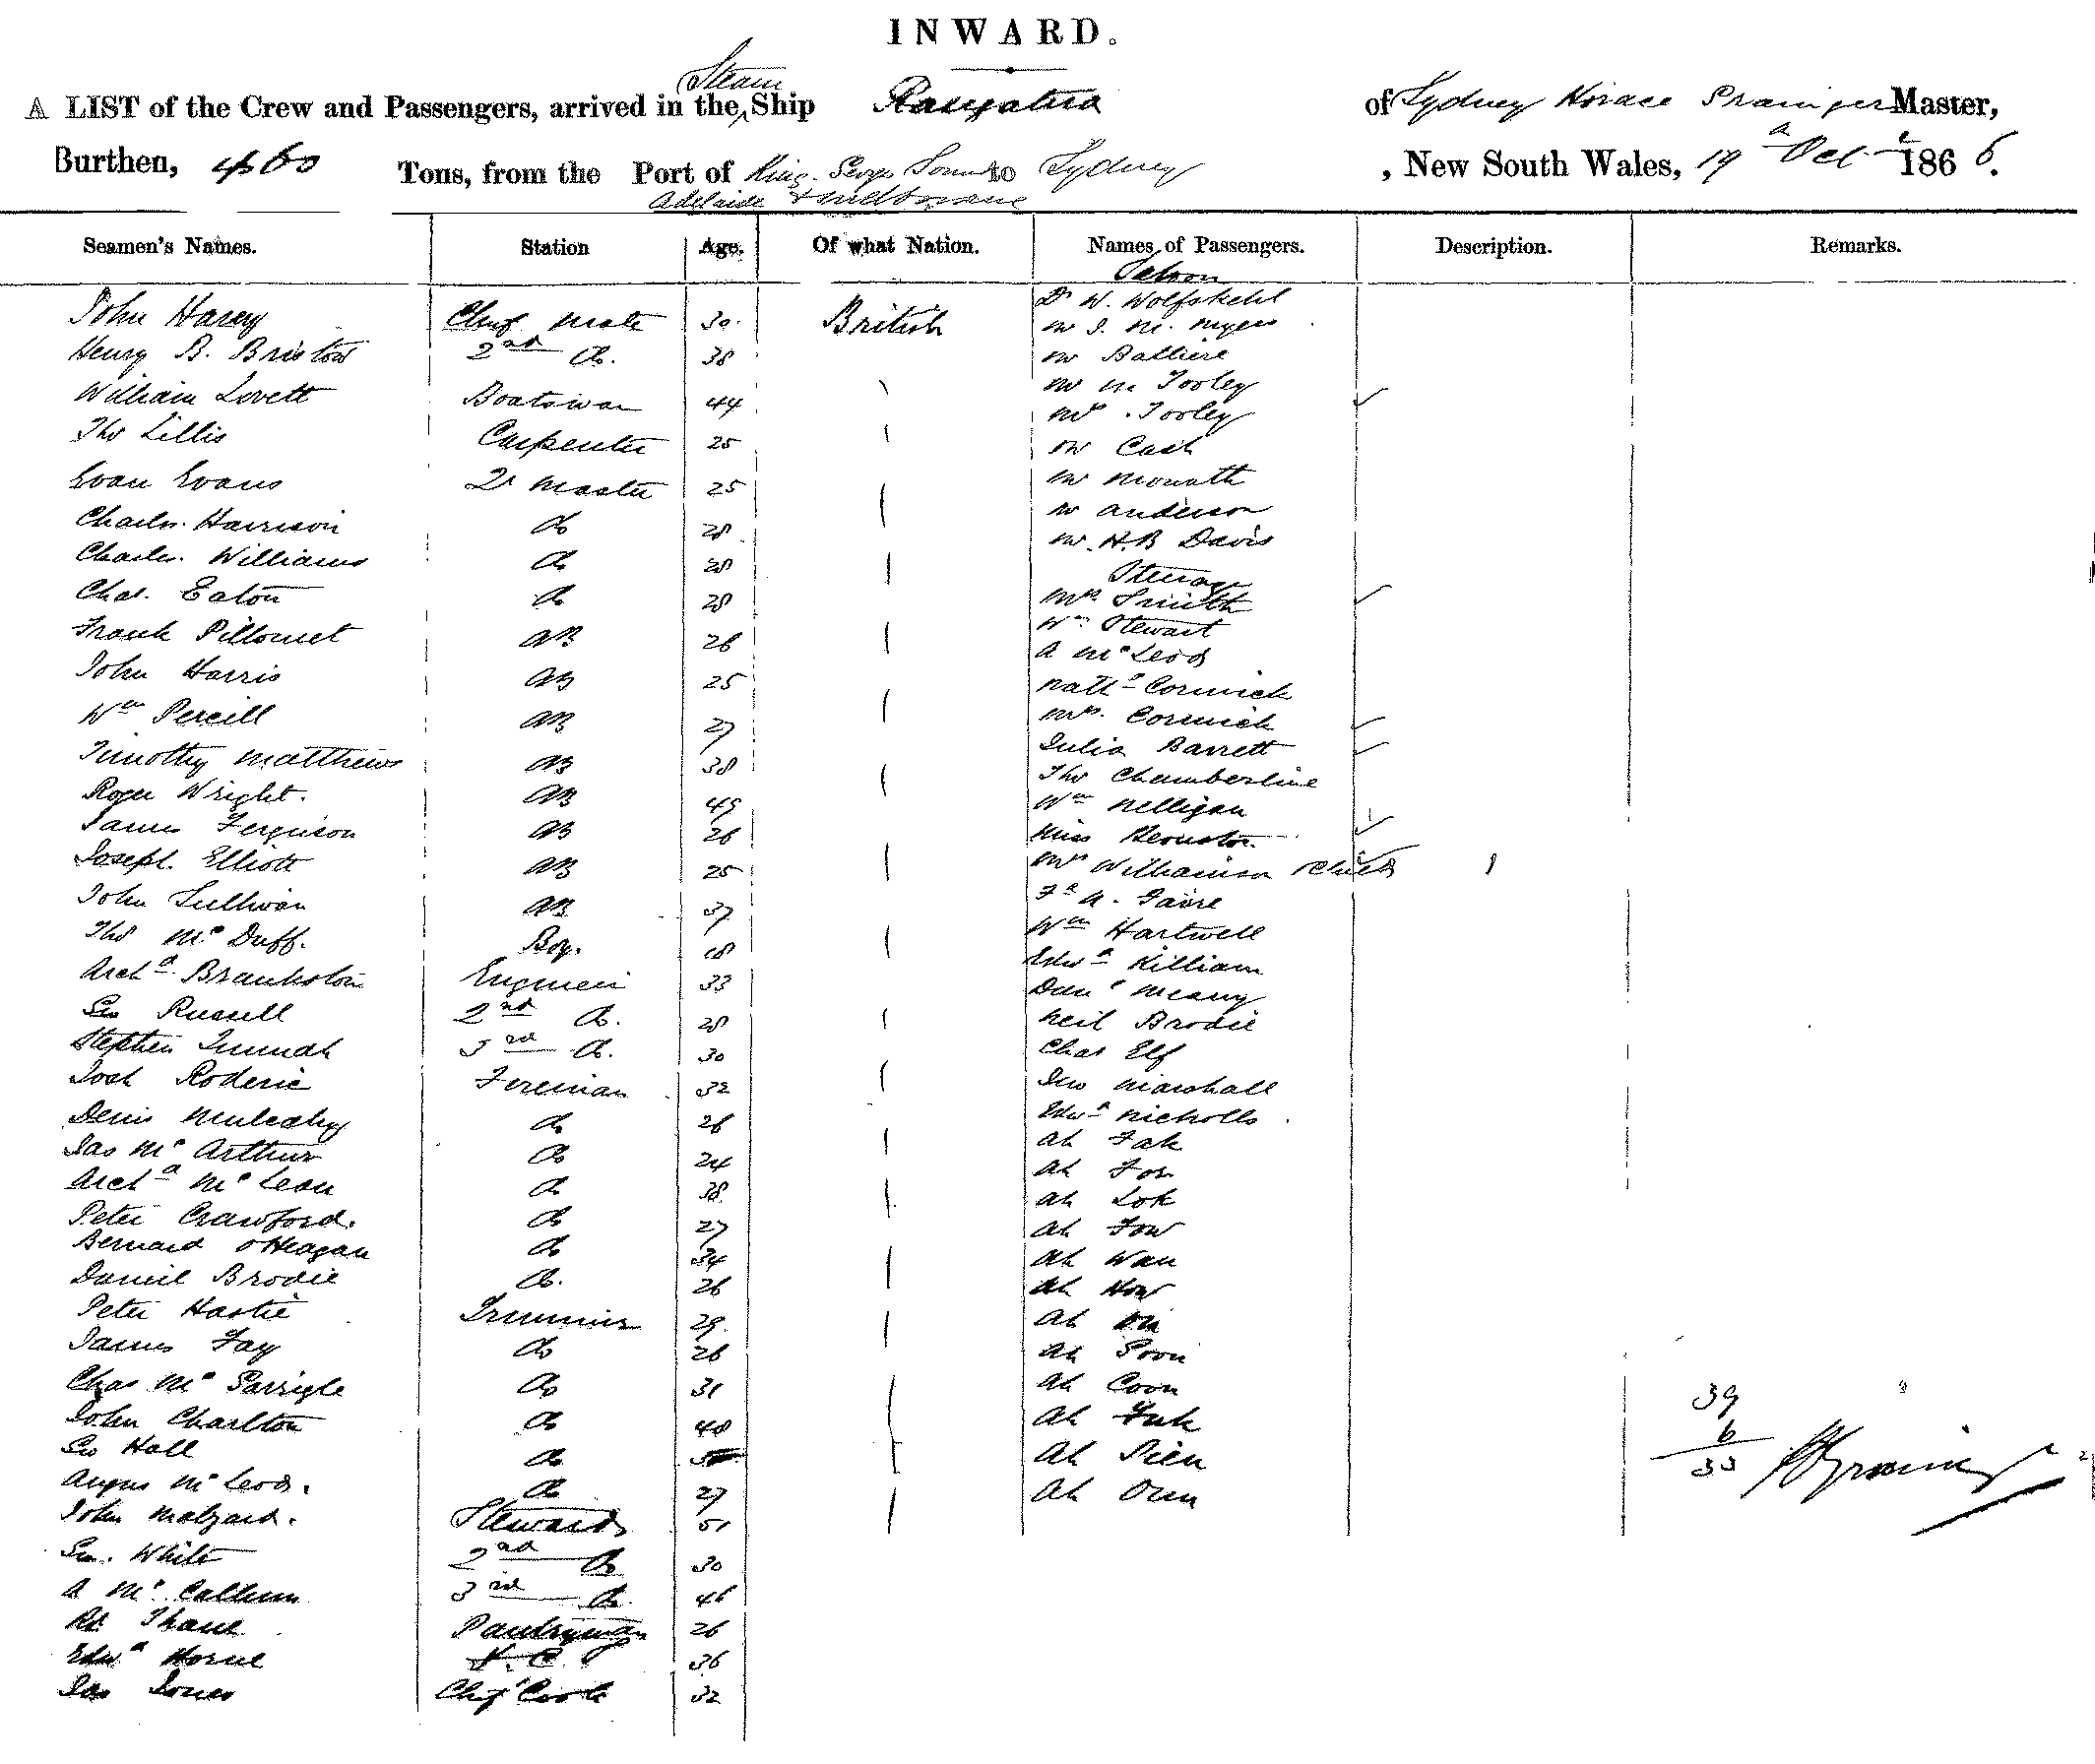 INWARD.
Steam
A LIST of the Crew and Passengers, arrived in the Ship Rangatira of Sydney Horace Master,
Burthen, 460 Tons, from the Port of King Geo Sound to Sydney , New South Wales, 19 Oct 1866.
Adelaide & Melbourne
Seamen's Names. Station Age. Of what Nation. Names of Passengers. Description. Remarks.
Saloon
Dr W. Wolfskehl
John Harey Chief Mate 30 British Mr I. M. Myers
Henry B. Bristow 2nd Do. 38 Mr Balliere
Mr M Tooley
William Lovett Boatswan 44
Mrs Tooley
Thos Lillis Carpenter 25 Mr Cash
Evan Evans Qr Master 25 Mr Monath
Charles Harrison Do 28 Mr Anderson
Mr H.B Davis
Charles Williams Do 28 Steerage
Chas. Eaton Do 28 Mrs Smith
Wm Stewart
Frank AB 26 A McLeod
John Harris AB 25 Natl Cormick
Wm Percill AB 27 Mrs. Cormick
Timothy Matthews AB 38 Julia Barrett
Thos Chamberline
Roger Wright. AB 49 Wm Nelligan
James Ferguson AB 26 Miss
Joseph Elliott AB 25 Mrs Williamson & Child 1
John Sullivan AB 37 A. Faure
Thos McDuff. Boy. 18 Wm Hartwell
Edwd Killiam
Archd Brankston Engineer 33
Danl Meany
Geo Russell 2nd Do. 28 Neil Brodie
Stephen 3rd Do. 30 Chas Elf
Josh Roderic Fireman 32 Geo Marshall
Denis Mulcahy Do 26 Edwd Nicholls
Ah Fak
Jas McArthur Do 24 Ah Fon
Archd McLean Do 38 Ah Lok
Peter Crawford. Do 27 Ah Fow
Bernard O'Heagan Do 34 Ah Wan
Daniel Brodie Do. 26 Ah How
Peter Hastie Trimmer 29 Ah
James Fay Do 26 Ah Poon
Chas McGarrigle Do 31 Ah Coon 39
John Charlton Do 40 Ah Fuk 6
Geo Hall Do Ah Pien 33
Angus McLeod. Do 27 Ah Oun
John Malzard. Stewards 51
Geo. White 2nd Do 30
A McCallum 3rd Do. 46
Rt Thane Pantryman 26
Edwd Horne 36
Jas Jones Chief Cook 32